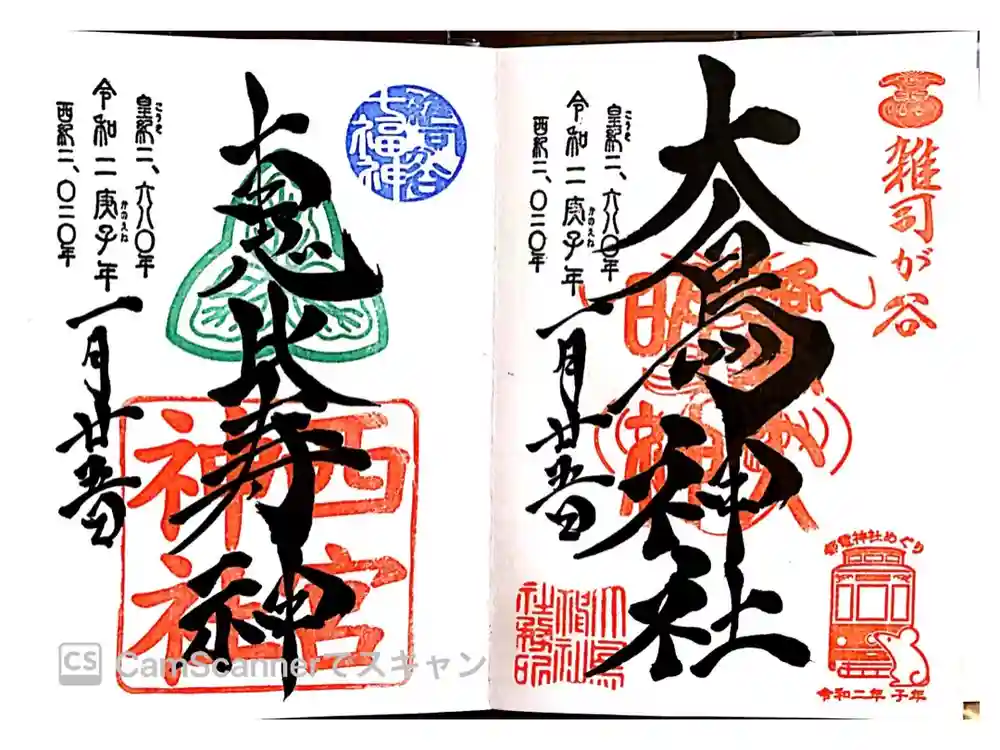 雑司が谷
大鳥神社
皇紀二、六八〇年
こうき
令和二庚子年
かのえね
西紀二、〇二〇年
一月廿五日
大鳥
神社
社務所
都電神社めぐり
令和二年 子年
七福神
恵比寿神
西宮
神社
皇紀二、六八〇年
こうき
令和二庚子年
かのえね
西紀二、〇二〇年
一月廿五日
CS CamScannerでスキャン